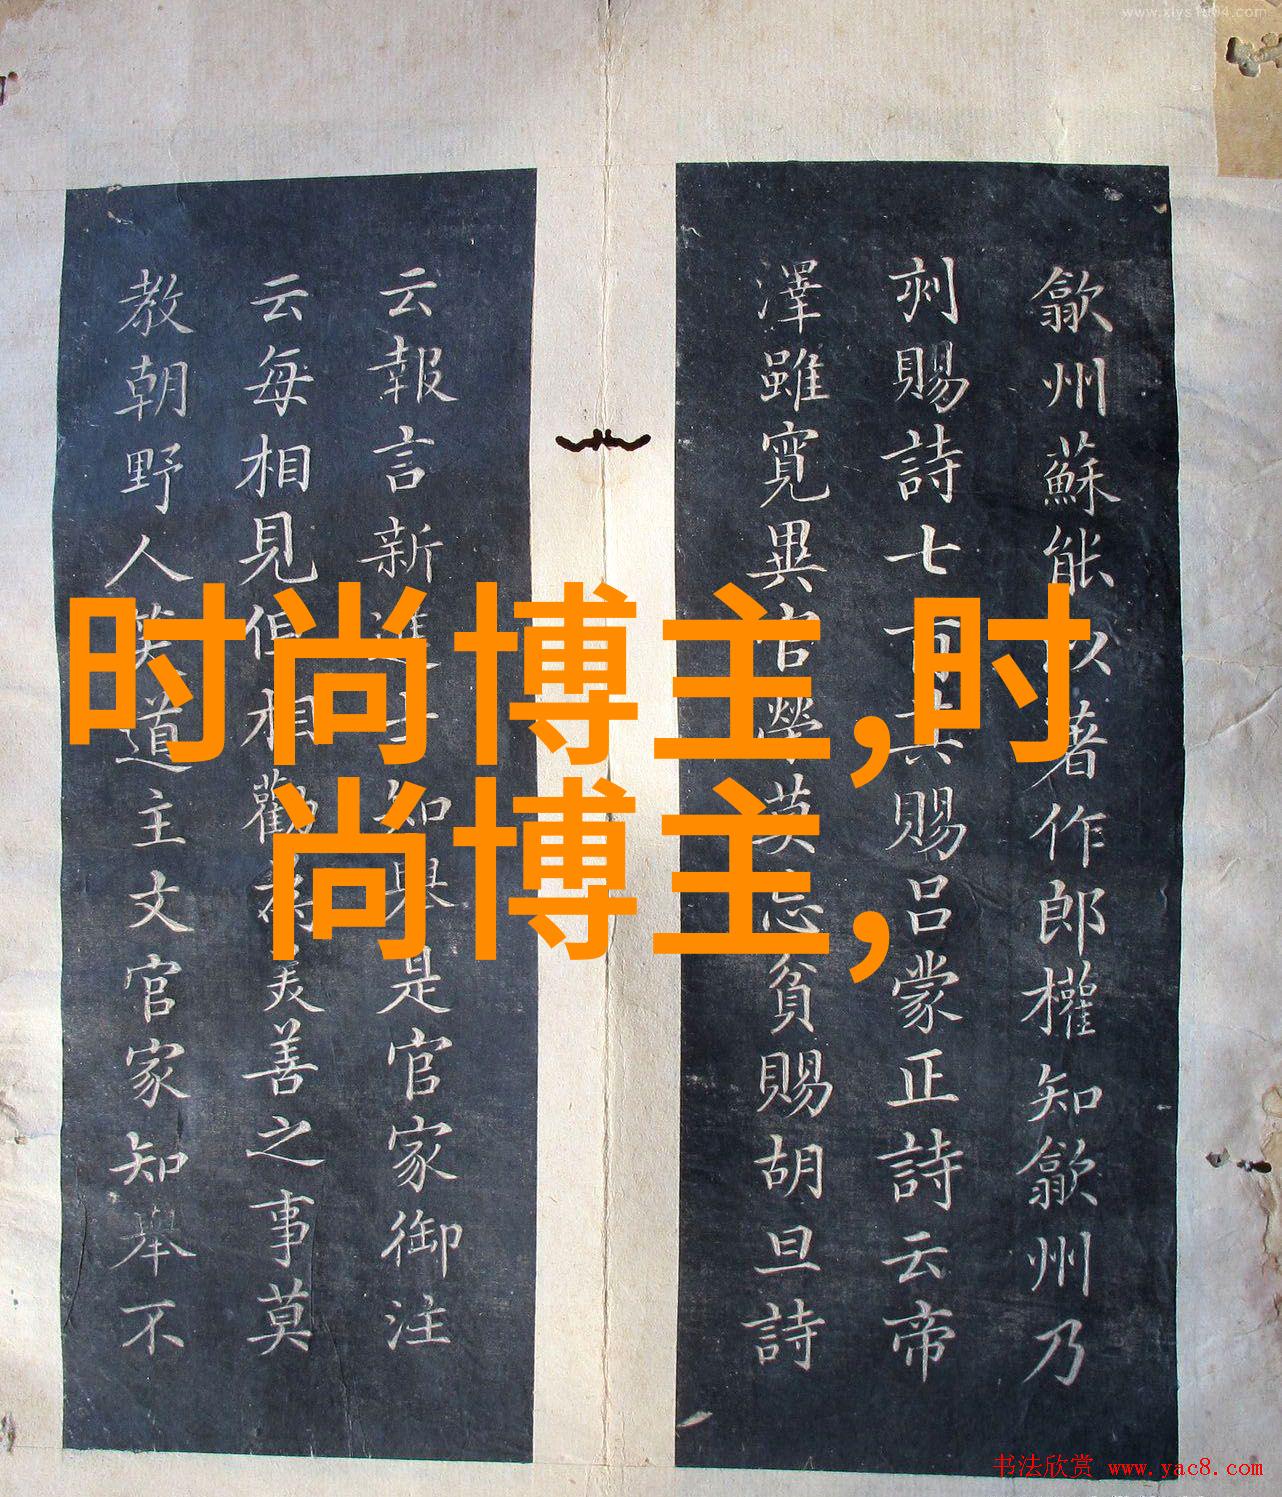 www.xiys1004.com
歙州蘇能以著作郎權知歙州乃
刾賜詩七賜呂蒙正詩云帝
澤雖寬異官榮莫忘貧賜胡旦詩
云報言新進士知舉是官家御注
云每相見但相勸為美善之事莫
教朝野人笑道主文官家知舉不
时尚博主,时
尚博主,
书法欣赏 www.yac8.com